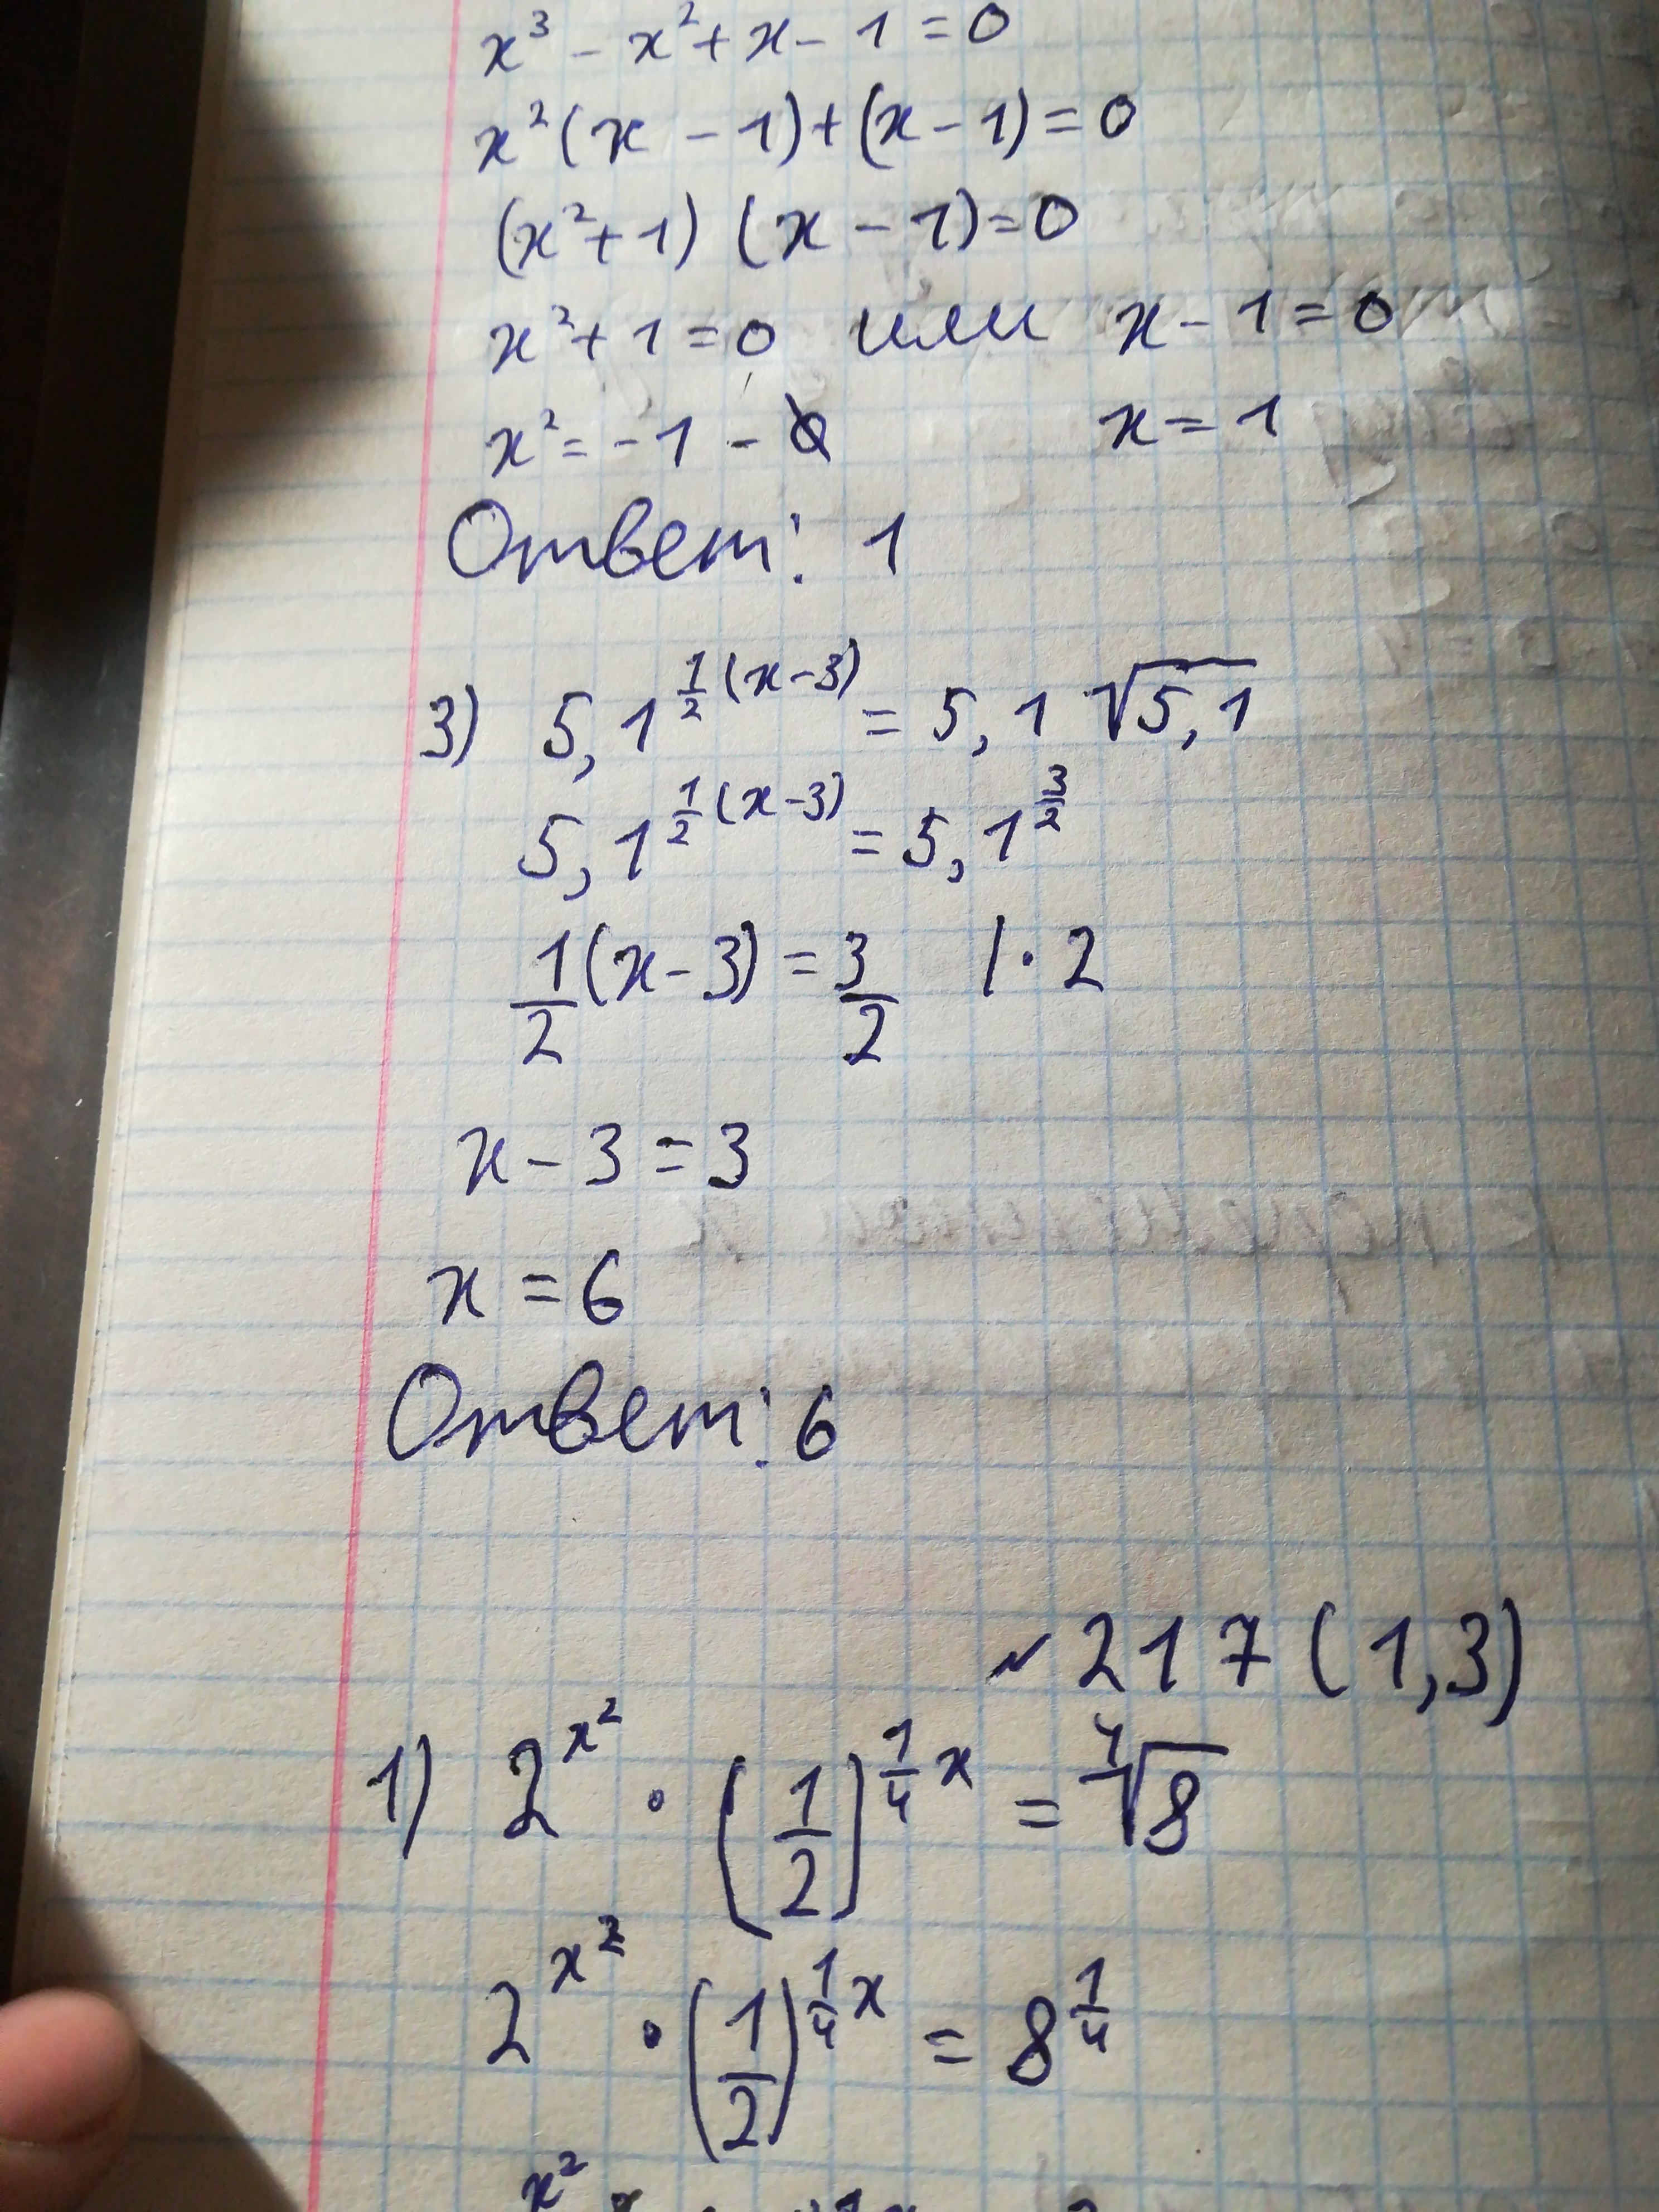 x³ - x² + x - 1 = 0
x²(x - 1) + (x - 1) = 0
(x² + 1)(x - 1) = 0
x² + 1 = 0 или x - 1 = 0
x² = -1 - ∅ x = 1
Ответ: 1
3) 5,1^(1/2(x-3)) = 5,1 √5,1
5,1^(1/2(x-3)) = 5,1^(3/2)
1/2(x - 3) = 3/2 | · 2
x - 3 = 3
x = 6
Ответ: 6
№217(1,3)
1) 2^(x²) · (1/2)^(1/4 x) = ⁴√8
2^(x²) · (1/2)^(1/4 x) = 8^(1/4)